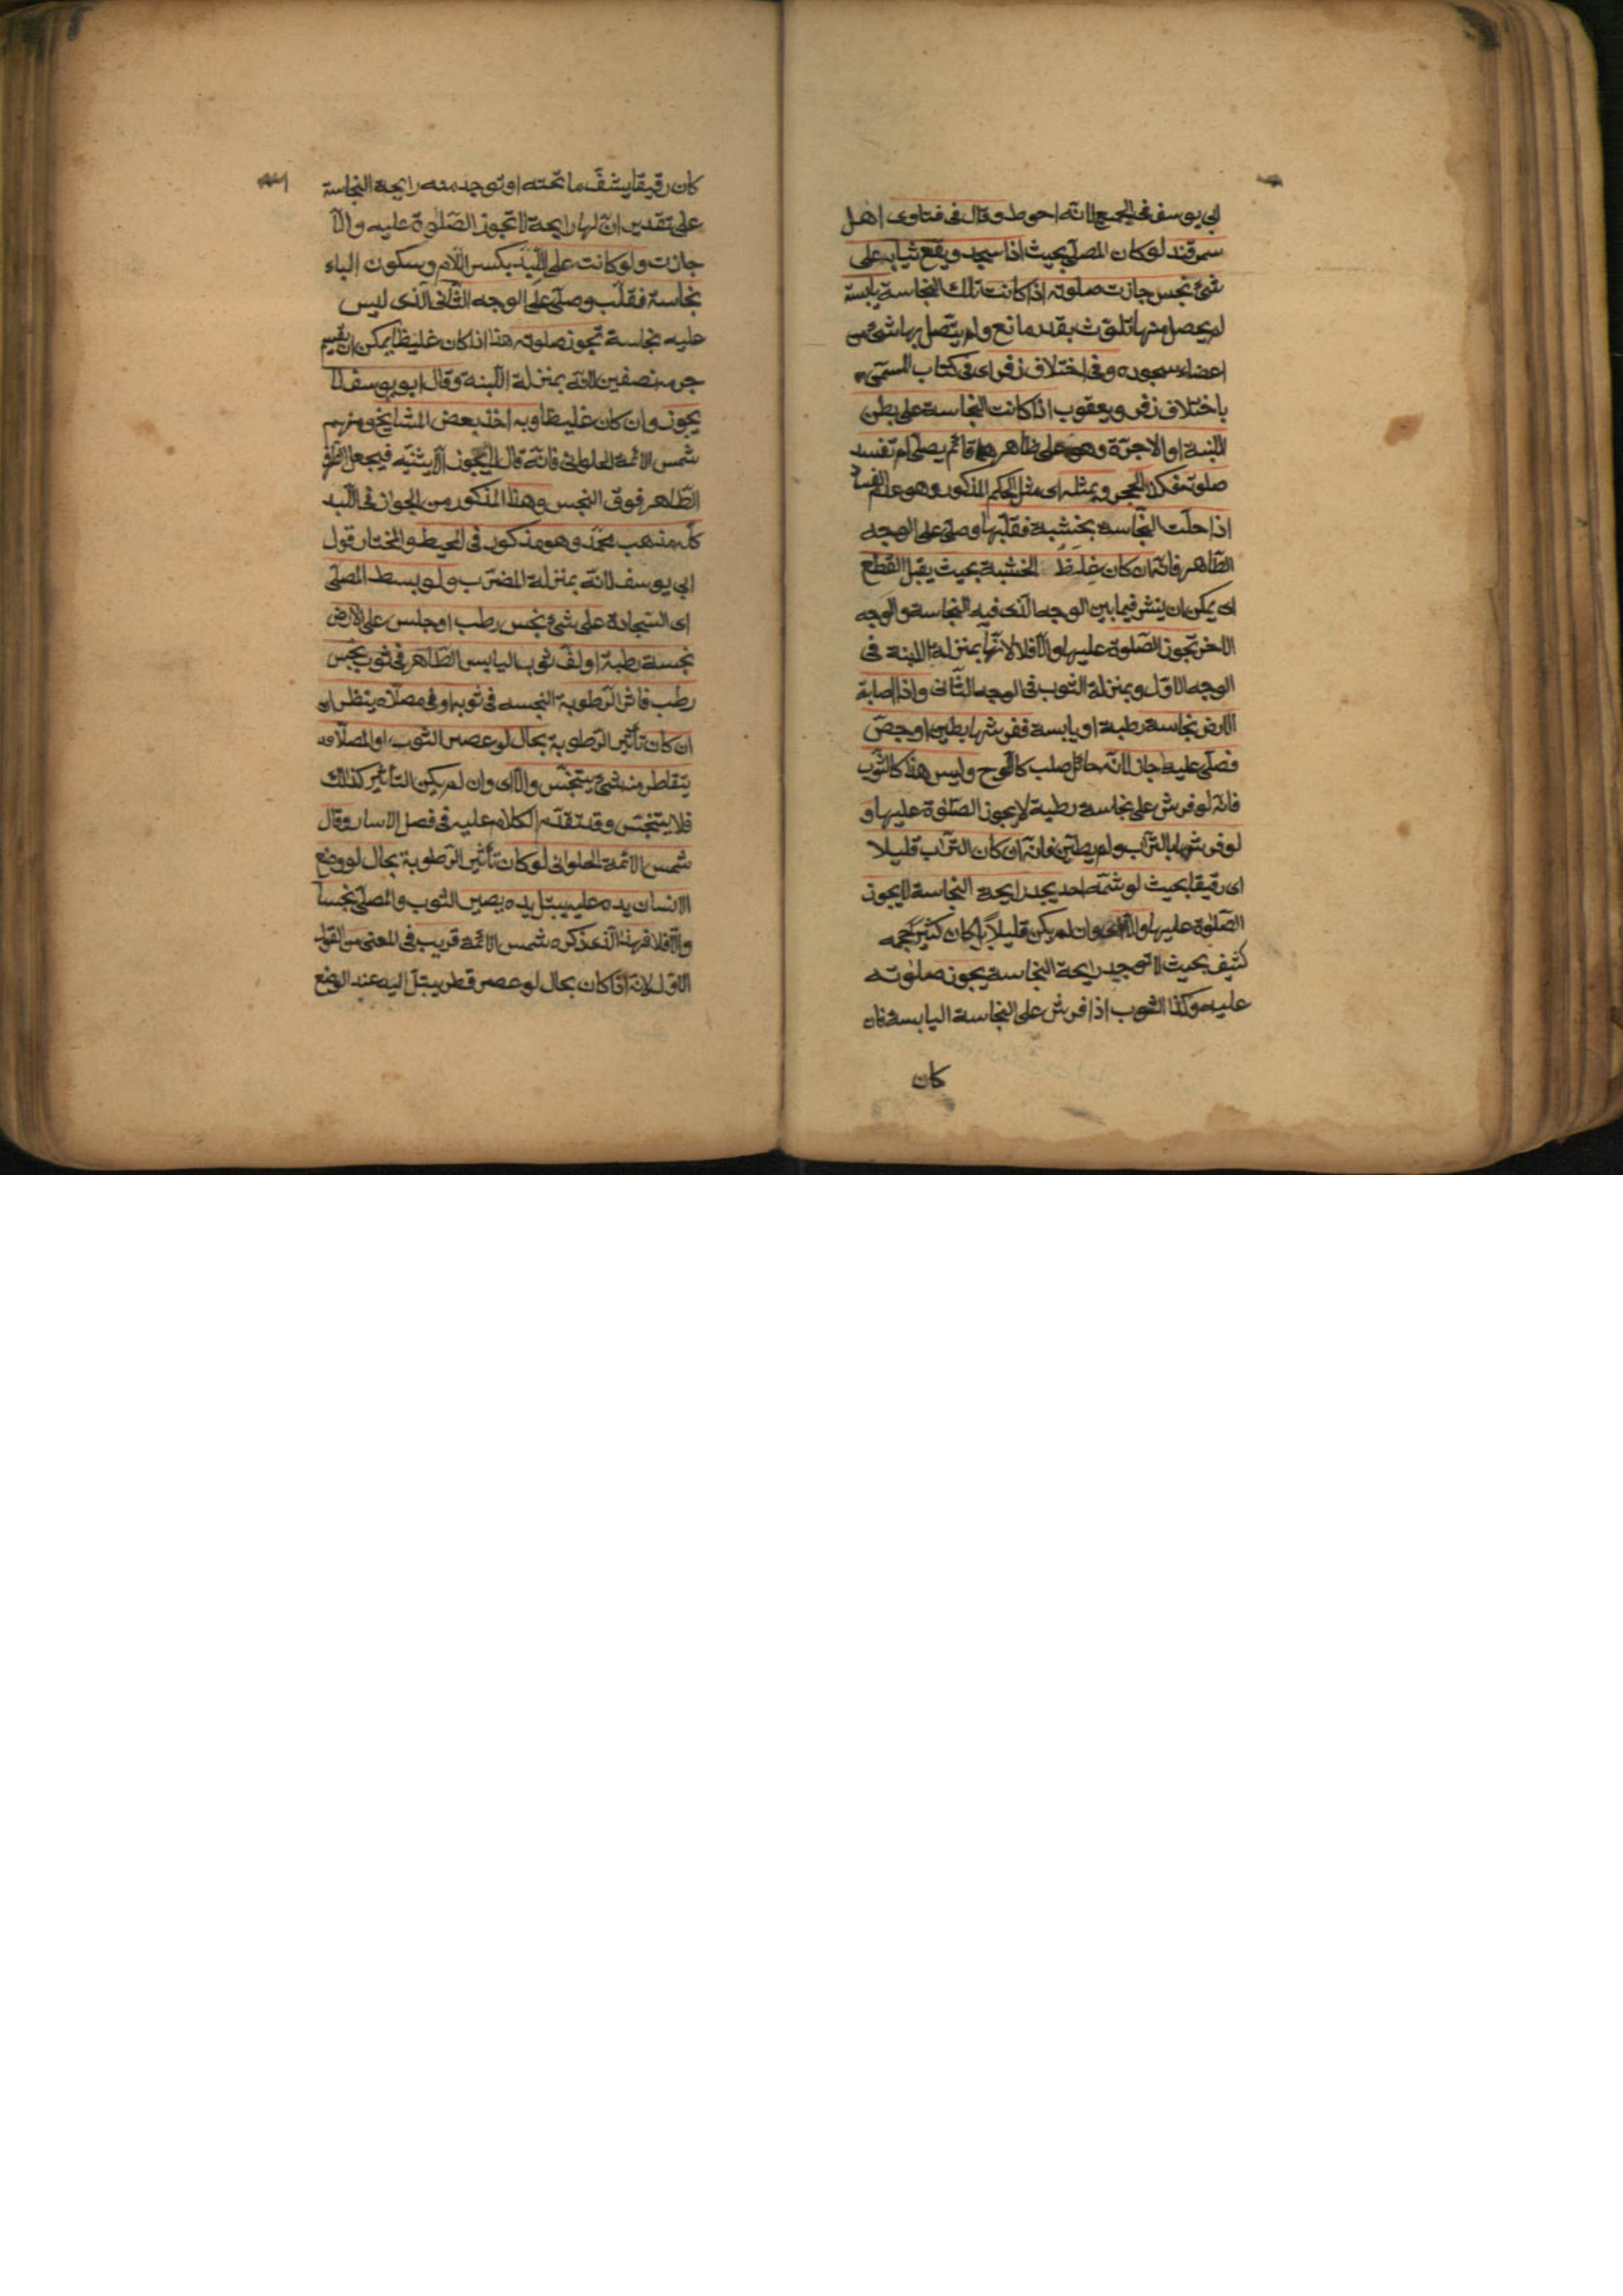 ابي يوسف في الجميع لانه احوط وقال في فتاوى اهل
سمرقند لو كان المصلي بحيث اذا سجد ويقع ثيابه على
شئ نجس جازت صلوته اذا كانت تلك النجاسة يابسة
لم يحصل منها تلوث بقدر مانع ولم يتصل بها شئ من
اعضاء سجوده وفي اختلاف زفر اى في كتاب المسمى
باختلاف زفر ويعقوب اذا كانت النجاسة على بطن
اللبنة او الاجرة وهو على ظاهرها قائم يصلى لم تفسد
صلوته فكذا الحجر وبمثله اى مثل الحكم المذكور وهو عدم الفساد
اذا حلت النجاسة بخشبة فقلبها وصلى على الوجه
الطاهر فانه ان كان غلظ الخشبة بحيث يقبل القطع
اى يمكن ان ينشر فيما بين الوجه الذى فيه النجاسة والوجه
الاخر تجوز الصلوة عليها والا فلا لانها بمنزلة اللبنة في
الوجه الاول وبمنزلة الثوب في الوجه الثاني واذا اصابة
الارض نجاسة رطبة او يابسة ففرشها بطين او جص
فصلى عليها جاز لانه حائل صلب كاللوح وليس هذا كالثوب
فانه لو فرش على نجاسة رطبة لا يجوز الصلوة عليها و
لو فرشها بالتراب ولم يطين فانه ان كان التراب قليلا
اى رقيقا بحيث لو شمه احد يجد رايحة النجاسة لا يجوز
الصلوة عليها والا اى وان لم يكن قليلا بل كان كثير حجمه
كثيف بحيث لا توجد رايحة النجاسة يجوز صلوته
عليه وكذا الثوب اذا فرش على النجاسة اليابسة فان
كان
كان رقيقا يشف ما تحته او توجد منه رايحة النجاسة
على تقدير ان لها رايحة لا تجوز الصلوة عليه والا
جازت ولو كانت على اللبد بكسر اللام وسكون الباء
نجاسة فقلب وصلى على الوجه الثاني الذى ليس
عليه نجاسة تجوز صلوته هذا اذا كان غليظا يمكن ان يقسم
جرمه نصفين لانه بمنزلة اللبنة وقال ابو يوسف لا
يجوز وان كان غليظا وبه اخذ بعض المشايخ ومنهم
شمس الائمة الحلواني فانه قال لا يجوز الا ان يثنيه فيجعل الطرف
الطاهر فوق النجس وهذا المذكور من الجواز في اللبد
كله مذهب محمد وهو مذكور في المحيط والمختار قول
ابي يوسف لانه بمنزلة المضرب ولو بسط المصلى
اى السجادة على شئ نجس رطب او جلس على الارض
نجسة رطبة او لف ثوب اليابس الطاهر في ثوب نجس
رطب فاثر الرطوبة النجسه في ثوبه او في مصلاه ينظر ان
ان كان تأثير الرطوبة بحال لو عصر الثوب او المصلا
يتقاطر منه شئ يتنجس والا اى وان لم يكن التأثير كذلك
فلا يتنجس وقد تقدم الكلام عليه في فصل الاسار وقال
شمس الائمة الحلواني لو كان تأثير الرطوبة بحال لو وضع
الانسان يده عليه يبتل يده يصير الثوب والمصلى نجسا
والا فلا فهذا الذى ذكره شمس الائمة قريب في المعنى من القول
الاول لانه اذا كان بحال لو عصر قطر يبتل اليد عند الوضع